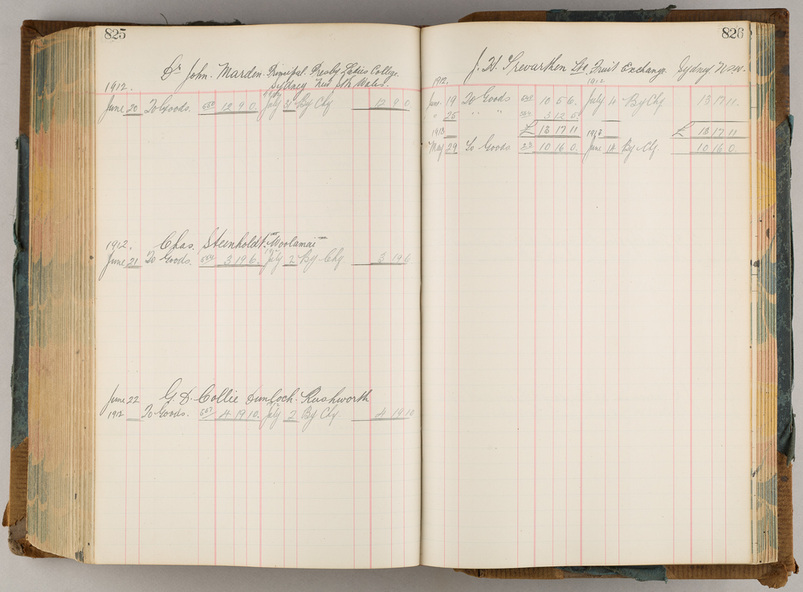 825
Dr John Marden. Principal. Presby Ladies College.
1912. Sydney New Sth Wales.
June 20 To Goods. 12 9 0. July 3 By Chq 12 9 0.
1912. Chas. Steenholdt. Woolamai
June 21 To Goods. 3 19 6. July 2 By Chq 3 19 6
June 22 G. D. Collie Rushworth
1912 To Goods. 4 19 10. July 2 By Chq 4 19 10
826
J. H. Trevarthen Ltd Fruit Exchange. Sydney NSW.
1912. 1912
June 19 To Goods 10 5 6. July 4 By Chq 13 17 11.
" 25 " " 3 12 5
1913 £ 13 17 11 1913 £ 13 17 11
May 29 To Goods 10 16 0. June 14 By Chq. 10 16 0.